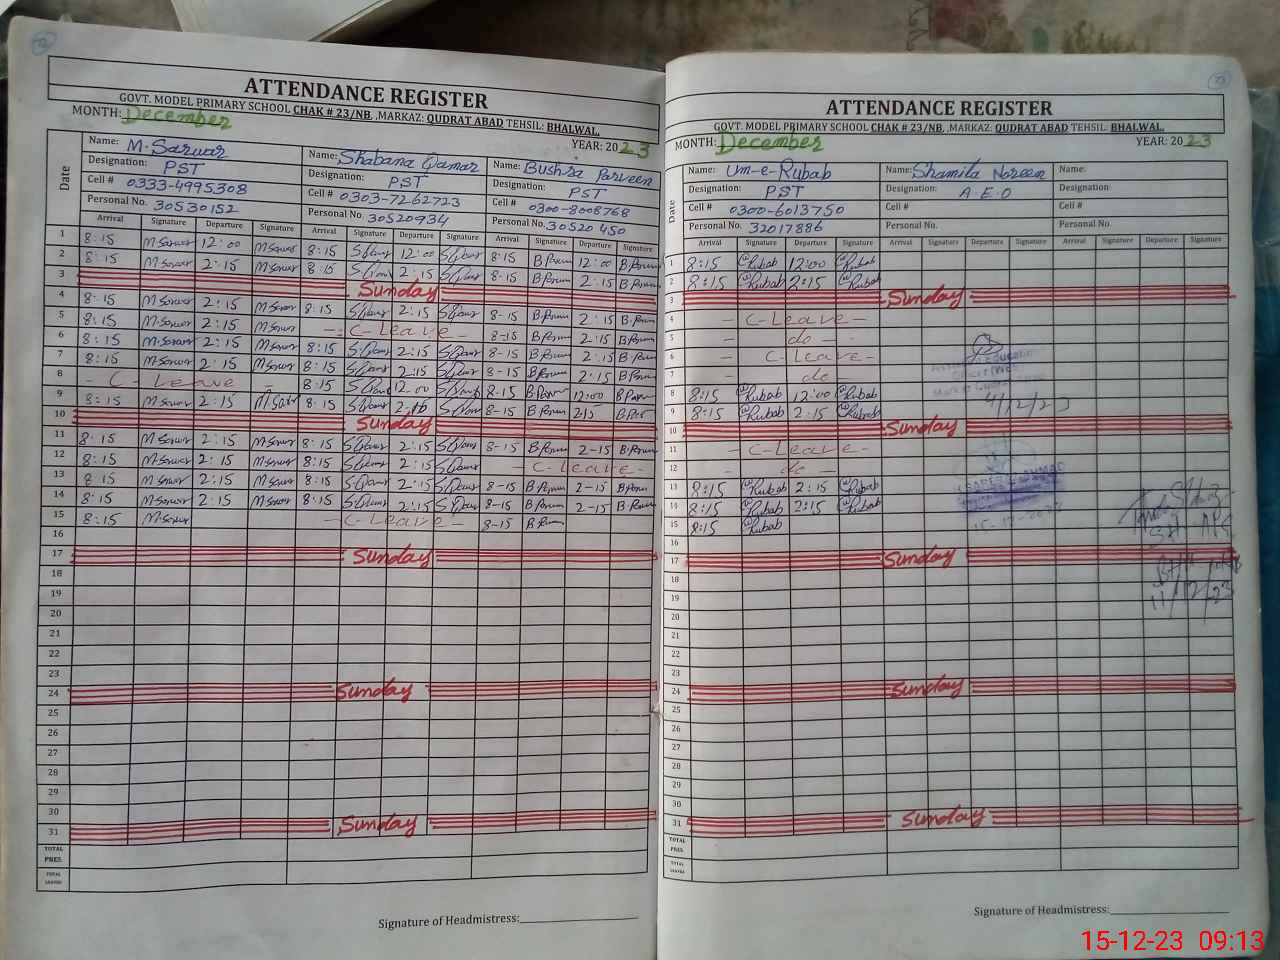 72
ATTENDANCE REGISTER
GOVT. MODEL PRIMARY SCHOOL CHAK # 23/NB, ,MARKAZ: QUDRAT ABAD TEHSIL: BHALWAL.
MONTH: December YEAR: 2023
Date
Name: M. Sarwar Name: Shabana Qamar Name: Bushra Parveen
Designation: PST Designation: PST Designation: PST
Cell # 0333-4995308 Cell # 0303-7262723 Cell # 0300-8008768
Personal No. 30530152 Personal No. 30520934 Personal No. 30520450
Arrival Signature Departure Signature Arrival Signature Departure Signature Arrival Signature Departure Signature
1 8:15 M Sarwar 12:00 M Sarwar 8:15 12:00 8:15 12:00
2 8:15 M Sarwar 2:15 M Sarwar 8:15 2:15 8-15 2:15
3 Sunday
4 8:15 M Sarwar 2:15 M Sarwar 8:15 2:15 8-15 2:15
5 8:15 M Sarwar 2:15 M Sarwar - C-Leave - 8-15 2:15
6 8:15 M Sarwar 2:15 M Sarwar 8:15 2:15 8-15 2:15
7 8:15 M Sarwar 2:15 M Sarwar 8:15 2:15 8-15 2:15
8 - C- Leave - 8:15 12:00 8-15 12:00
9 8:15 M Sarwar 2:15 M Sarwar 8:15 8-15 2:15
10 Sunday
11 8:15 M Sarwar 2:15 M Sarwar 8:15 2:15 8-15 2-15
12 8:15 M Sarwar 2:15 M Sarwar 8:15 2:15 - C-Leave -
13 8:15 M Sarwar 2:15 M Sarwar 8:15 2:15 8-15 2-15
14 8:15 M Sarwar 2:15 M Sarwar 8:15 2:15 8-15 2-15
15 8:15 M Sarwar - C-Leave - 8-15
16
17 Sunday
18
19
20
21
22
23
24 Sunday
25
26
27
28
29
30
31 Sunday
TOTAL PRES.
TOTAL
Signature of Headmistress:
73
ATTENDANCE REGISTER
GOVT. MODEL PRIMARY SCHOOL CHAK # 23/NB, ,MARKAZ: QUDRAT ABAD TEHSIL: BHALWAL.
MONTH: December YEAR: 2023
Date
Name: Um-e-Rubab Name: Shamila Noreen Name:
Designation: PST Designation: A.E.O Designation:
Cell # 0300-6013750 Cell # Cell #
Personal No. 32017886 Personal No. Personal No.
Arrival Signature Departure Signature Arrival Signature Departure Signature Arrival Signature Departure Signature
1 8:15 Rubab 12:00 Rubab
2 8:15 Rubab 2:15 Rubab
3 Sunday
4 - C-Leave -
5 - do -
6 - C-Leave -
7 - do -
8 8:15 Rubab 12:00 Rubab
9 8:15 Rubab 2:15 Rubab
10 Sunday
11 - C-Leave -
12 - do -
13 8:15 Rubab 2:15 Rubab
14 8:15 Rubab 2:15 Rubab
15 8:15 Rubab
16
17 Sunday
18
19
20
21
22
23
24 Sunday
25
26
27
28
29
30
31 Sunday
4/12/23
11/12/23
TOTAL PRES.
TOTAL
Signature of Headmistress:
15-12-23 09:13